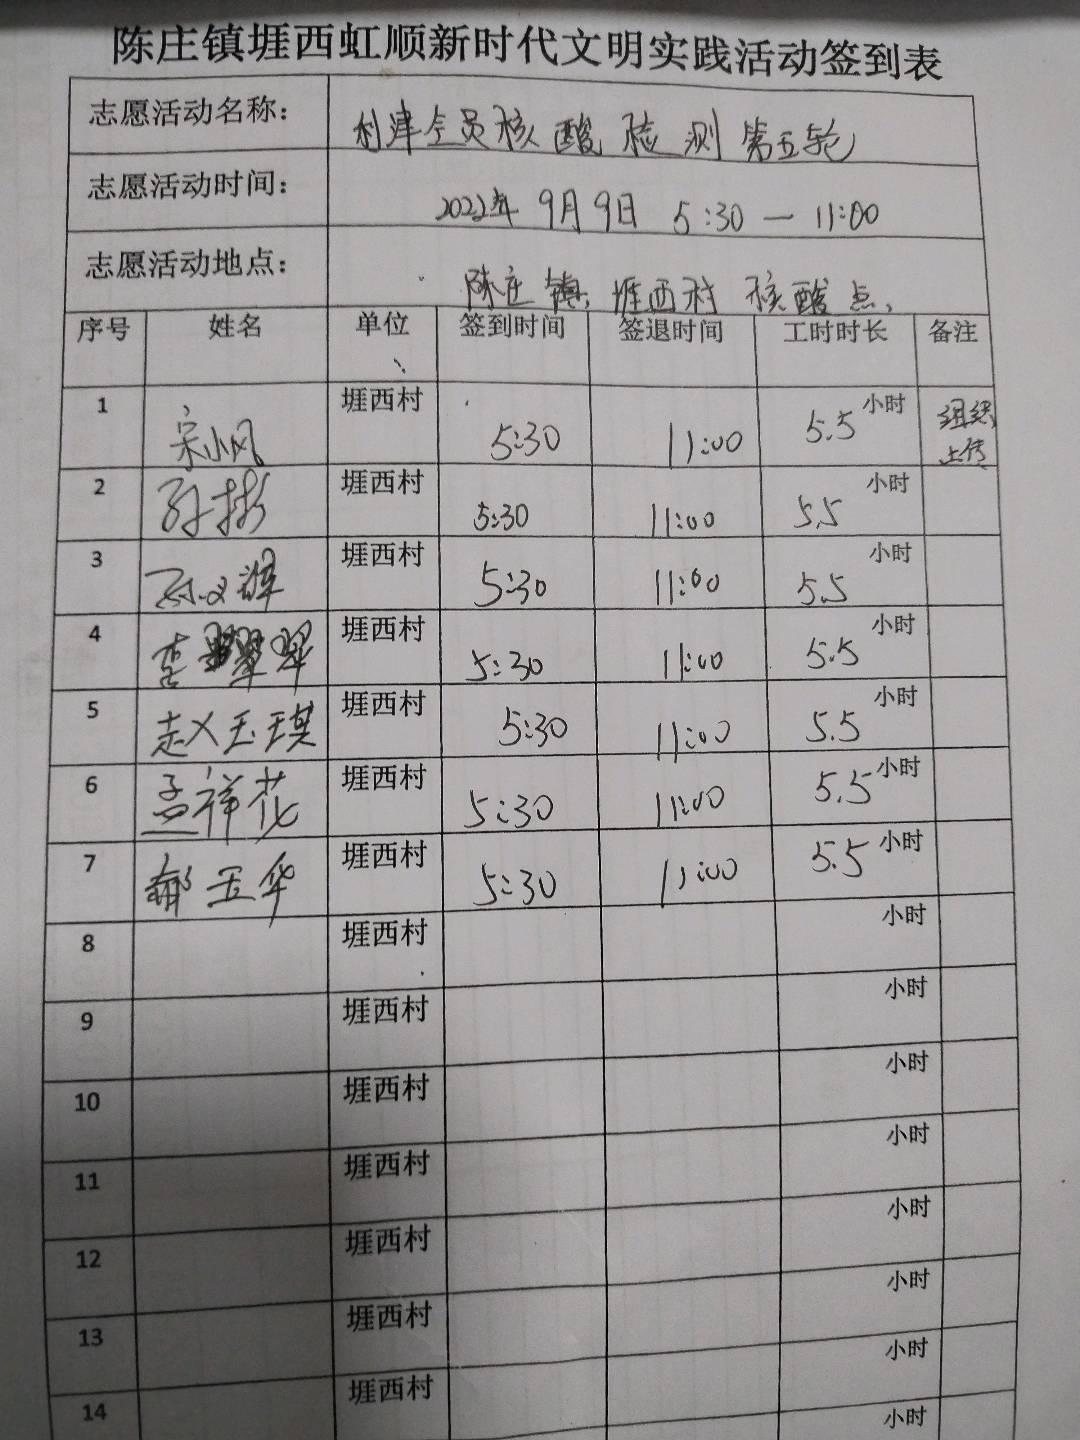 陈庄镇堐西虹顺新时代文明实践活动签到表
志愿活动名称： 利津全员核酸检测第五轮
志愿活动时间： 2022年9月9日 5:30一11:00
志愿活动地点： 陈庄镇堐西村核酸点
序号 姓名 单位 签到时间 签退时间 工时时长 备注
1 宋小风 堐西村 5:30 11:00 5.5小时 组织上传
2 孙彬 堐西村 5:30 11:00 5.5小时
3 孙文 堐西村 5:30 11:00 5.5小时
4 李翠翠 堐西村 5:30 11:00 5.5小时
5 赵玉琪 堐西村 5:30 11:00 5.5小时
6 孟祥花 堐西村 5:30 11:00 5.5小时
7 郁玉华 堐西村 5:30 11:00 5.5小时
8 堐西村 小时
9 堐西村 小时
10 堐西村 小时
11 堐西村 小时
12 堐西村 小时
13 堐西村 小时
14 堐西村 小时